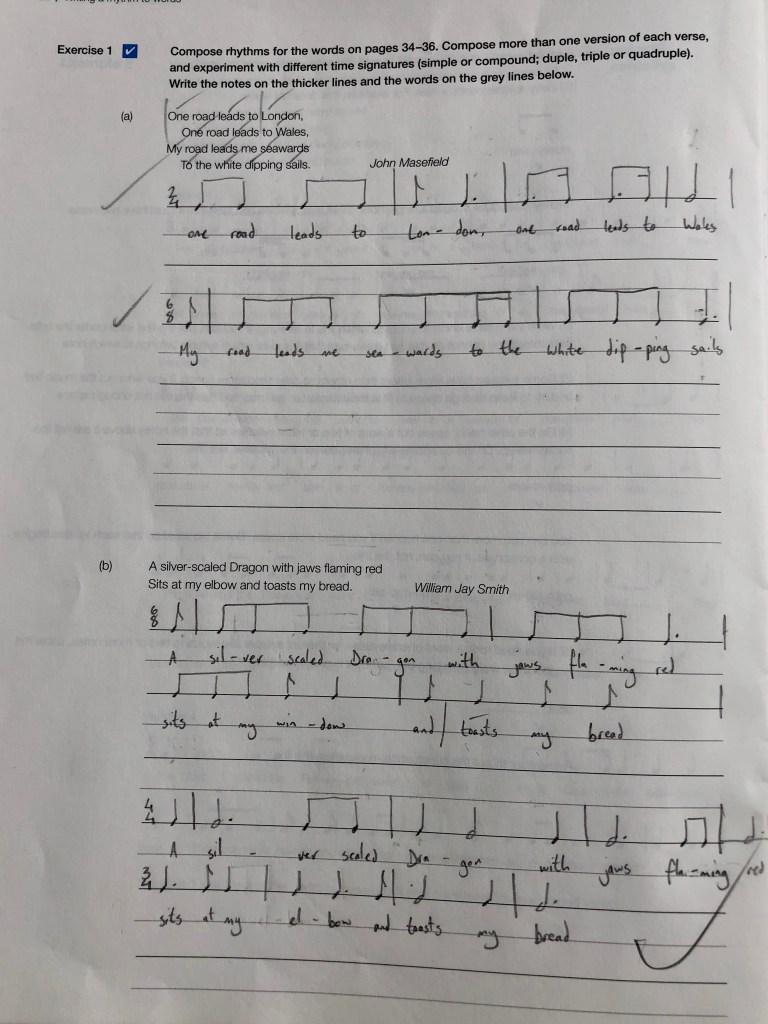 Exercise 1 Compose rhythms for the words on pages 34–36. Compose more than one version of each verse,
and experiment with different time signatures (simple or compound; duple, triple or quadruple).
Write the notes on the thicker lines and the words on the grey lines below.
(a) One road leads to London,
One road leads to Wales,
My road leads me seawards
To the white dipping sails. John Masefield
2/4
one road leads to Lon - don, one road leads to Wales
6/8
My road leads me sea - wards to the white dip - ping sails
(b) A silver-scaled Dragon with jaws flaming red
Sits at my elbow and toasts my bread. William Jay Smith
6/8
A sil - ver scaled Dra - gon with jaws fla - ming red
sits at my win - dow and toasts my bread
4/4
A sil - ver scaled Dra - gon with jaws fla - ming red
3/4
sits at my el - bow and toasts my bread